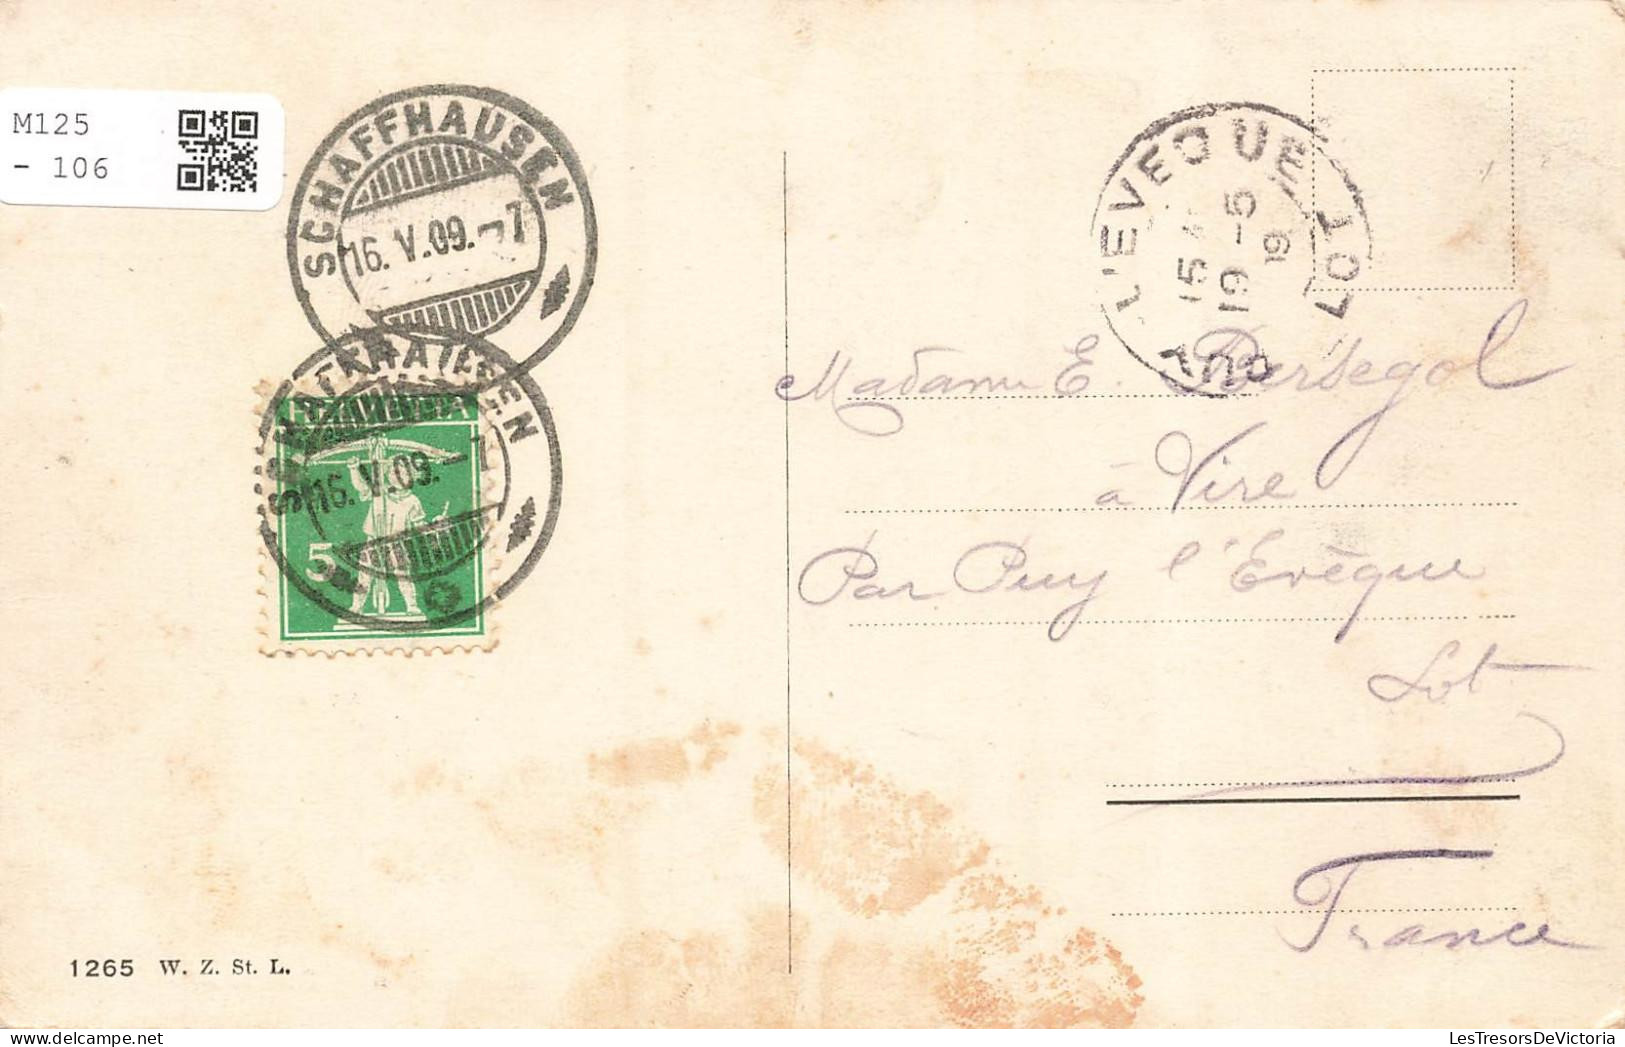 M125
- 106
SCHAFFHAUSEN
16. V. 09. - 7
SCHAFFHAUSEN
16. V. 09. - 7
HELVETIA
5
PUY L'EVEQUE LOT
15
19 - 5
19
Madame E. Bersegol
à Vire
Par Puy l'Evèque
Lot
France
1265 W. Z. St. L.
LesTresorsDeVictoria